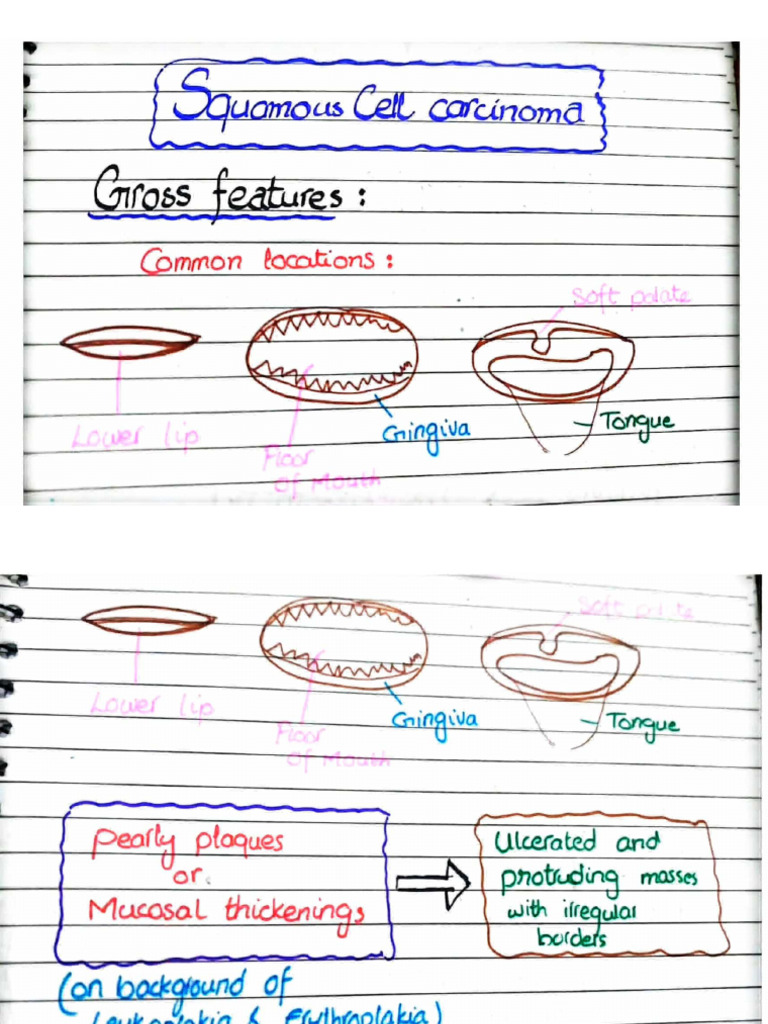 Squamous Cell carcinoma
Gross features:
Common locations:
Soft palate
Lower lip
Gingiva
Tongue
Floor
of Mouth
Soft palate
Lower lip
Gingiva
Tongue
Floor
of Mouth
Pearly plaques
or
Mucosal thickenings
Ulcerated and
protruding masses
with irregular
borders
(on background of
Leukoplakia & Erythroplakia)